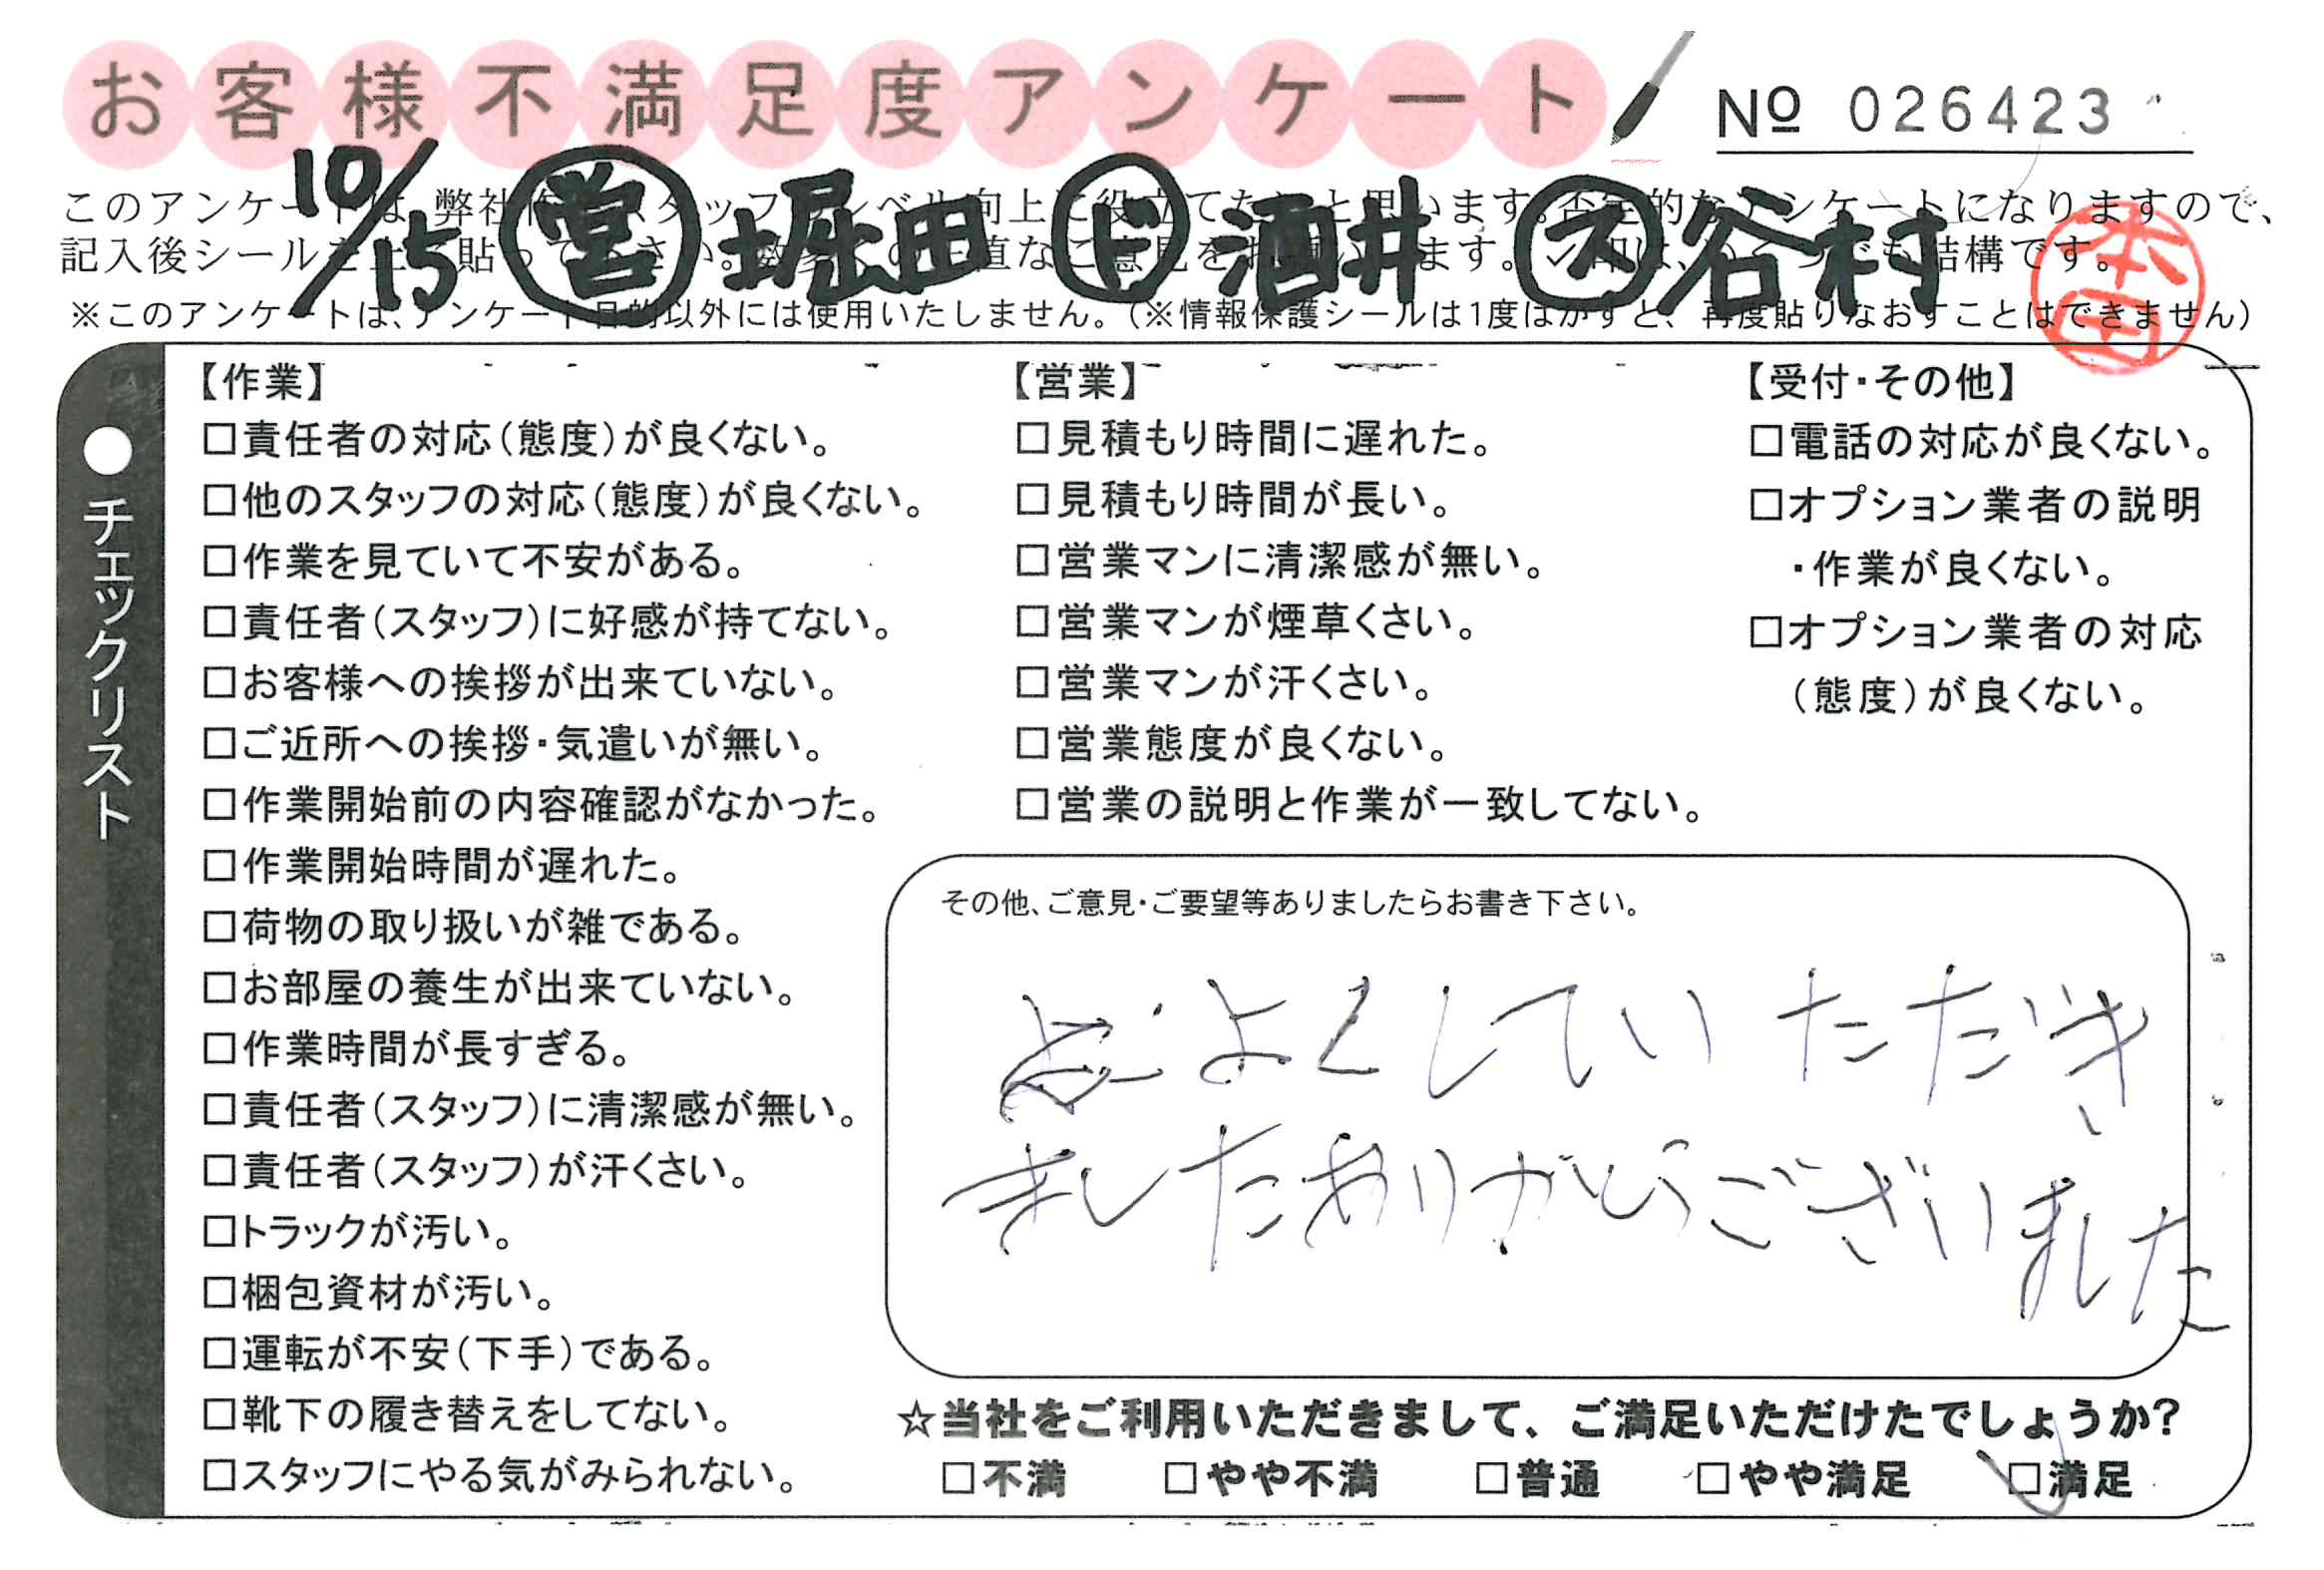 お客様不満足度アンケート
№ 026423
10/15 営 堀田 ド 酒井 ス 谷村
本田
記入後シール
※このアンケートは、アンケート目的以外には使用いたしません。(※情報保護シールは1度はがすと、再度貼りなおすことはできません)
●チェックリスト
【作業】
□責任者の対応(態度)が良くない。
□他のスタッフの対応(態度)が良くない。
□作業を見ていて不安がある。
□責任者(スタッフ)に好感が持てない。
□お客様への挨拶が出来ていない。
□ご近所への挨拶・気遣いが無い。
□作業開始前の内容確認がなかった。
□作業開始時間が遅れた。
□荷物の取り扱いが雑である。
□お部屋の養生が出来ていない。
□作業時間が長すぎる。
□責任者(スタッフ)に清潔感が無い。
□責任者(スタッフ)が汗くさい。
□トラックが汚い。
□梱包資材が汚い。
□運転が不安(下手)である。
□靴下の履き替えをしてない。
□スタッフにやる気がみられない。
【営業】
□見積もり時間に遅れた。
□見積もり時間が長い。
□営業マンに清潔感が無い。
□営業マンが煙草くさい。
□営業マンが汗くさい。
□営業態度が良くない。
□営業の説明と作業が一致してない。
【受付・その他】
□電話の対応が良くない。
□オプション業者の説明
・作業が良くない。
□オプション業者の対応
(態度)が良くない。
その他、ご意見・ご要望等ありましたらお書き下さい。
よくしていただき
ましたありがとうございました
☆当社をご利用いただきまして、ご満足いただけたでしょうか?
□不満 □やや不満 □普通 □やや満足 □満足